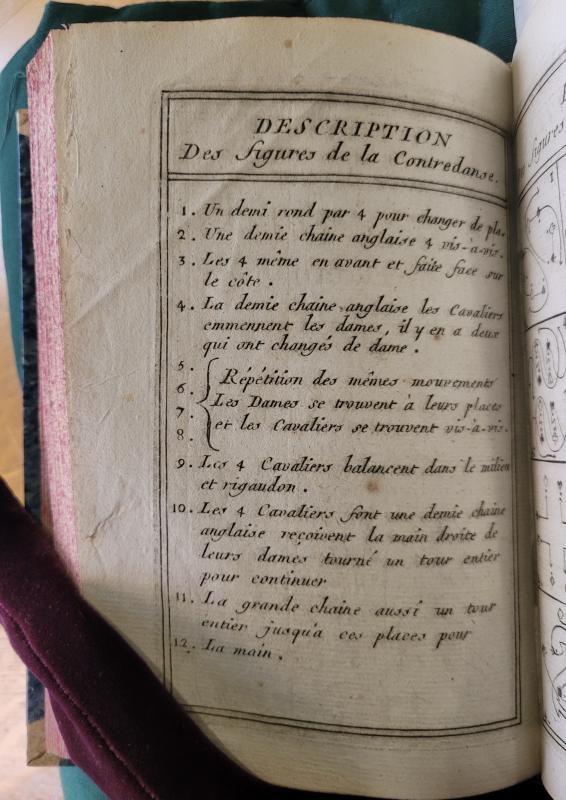 DESCRIPTION
Des figures de la Contredanse.
1. Un demi rond par 4 pour changer de pla.
2. Une demie chaine anglaise 4 vis-à-vis.
3. Les 4 même en avant et faite face sur
le côte.
4. La demie chaine anglaise les Cavaliers
emmennent les dames, il y en a deux
qui ont changés de dame.
5.
6.
7.
8.
Répétition des mêmes mouvements
Les Dames se trouvent à leurs places
et les Cavaliers se trouvent vis-à-vis.
9. Les 4 Cavaliers balancent dans le milieu
et rigaudon.
10. Les 4 Cavaliers font une demie chaine
anglaise reçoivent la main droite de
leurs dames tourné un tour entier
pour continuer
11. La grande chaine aussi un tour
entier jusqu'a ces places pour
12. La main.